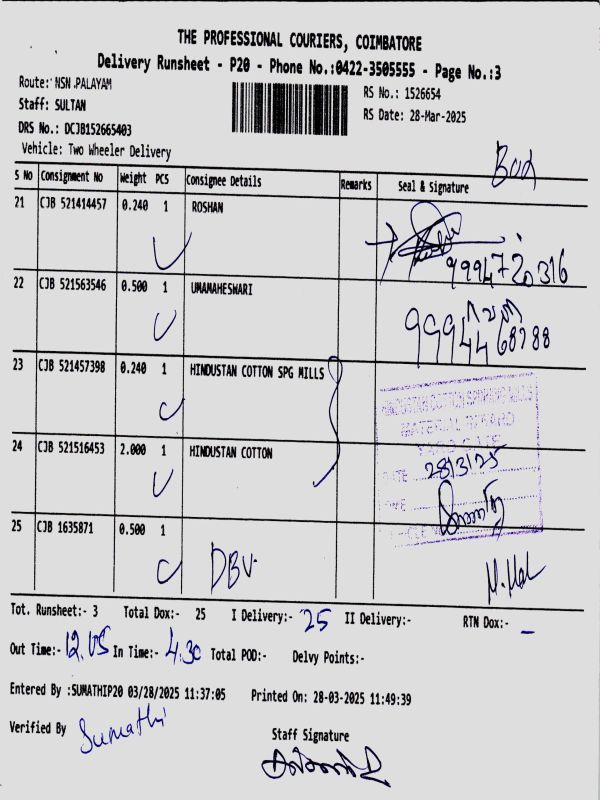 THE PROFESSIONAL COURIERS, COIMBATORE
Delivery Runsheet - P20 - Phone No.:0422-3505555 - Page No.:3
Route: NSN.PALAYAM
RS No.: 1526654
Staff: SULTAN
RS Date: 28-Mar-2025
DRS No.: DCJB152665403
Vehicle: Two Wheeler Delivery
S No Consignment No Weight PCS Consignee Details Remarks Seal & Signature
21 CJB 521414457 0.240 1 ROSHAN
9994720316
22 CJB 521563546 0.500 1 UMAMAHESWARI
9994468788
23 CJB 521457398 0.240 1 HINDUSTAN COTTON SPG MILLS
HINDUSTAN COTTON SPINNING MILLS
MATERIAL
24 CJB 521516453 2.000 1 HINDUSTAN COTTON
DATE 28/3/25
25 CJB 1635871 0.500 1
DBV.
Tot. Runsheet:- 3 Total Dox:- 25 I Delivery:- 25 II Delivery:- RTN Dox:- -
Out Time:- 12.05 In Time:- 4.30 Total POD:- Delvy Points:-
Entered By :SUMATHIP20 03/28/2025 11:37:05 Printed On: 28-03-2025 11:49:39
Verified By Sumathi
Staff Signature